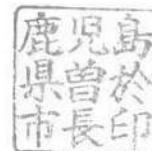 鹿児島
県曽於
市長印